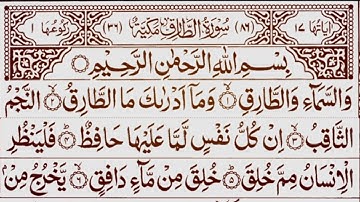 اٰيَاتُهَا ١٧ (٨٦) سُوْرَةُ الطَّارِقِ مَكِّيَّةٌ (٣٦) رُكُوْعُهَا ١
بِسْمِ اللّٰهِ الرَّحْمٰنِ الرَّحِيْمِ
وَالسَّمَآءِ وَالطَّارِقِ ۙ﴿۱﴾ وَمَاۤ اَدْرٰىكَ مَا الطَّارِقُ ۙ﴿۲﴾ النَّجْمُ
الثَّاقِبُ ۙ﴿۳﴾ اِنْ كُلُّ نَفْسٍ لَّمَّا عَلَيْهَا حَافِظٌ ؕ﴿۴﴾ فَلْيَنْظُرِ
الْاِنْسَانُ مِمَّ خُلِقَ ؕ﴿۵﴾ خُلِقَ مِنْ مَّآءٍ دَافِقٍ ۙ﴿۶﴾ يَّخْرُجُ مِنْۢ